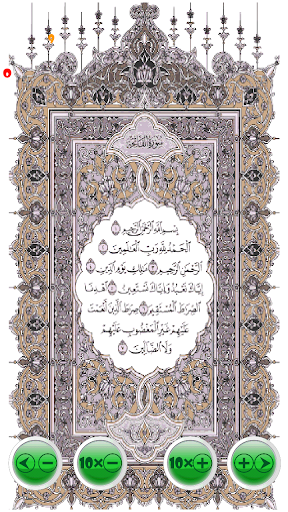 سورة الفاتحة
بِسْمِ اللَّهِ الرَّحْمَٰنِ الرَّحِيمِ ١
الْحَمْدُ لِلَّهِ رَبِّ الْعَالَمِينَ ٢
الرَّحْمَٰنِ الرَّحِيمِ ٣ مَالِكِ يَوْمِ الدِّينِ ٤
إِيَّاكَ نَعْبُدُ وَإِيَّاكَ نَسْتَعِينُ ٥ اهْدِنَا
الصِّرَاطَ الْمُسْتَقِيمَ ٦ صِرَاطَ الَّذِينَ أَنْعَمْتَ
عَلَيْهِمْ غَيْرِ الْمَغْضُوبِ عَلَيْهِمْ
وَلَا الضَّالِّينَ ٧
- 10x- 10x+ +